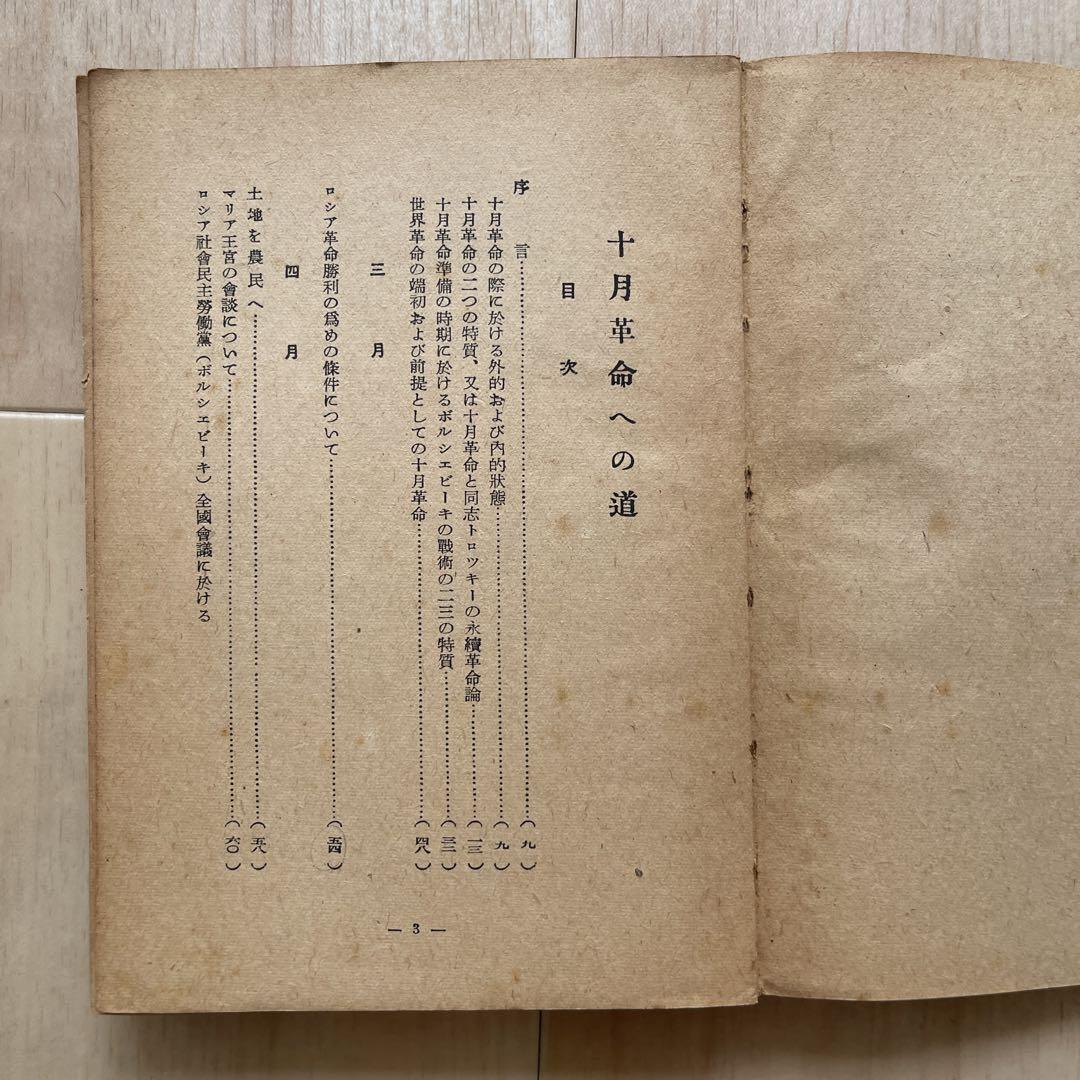 十月革命への道
目次
序言……（九）
十月革命の際に於ける外的および內的狀態……（九）
十月革命の二つの特質、又は十月革命と同志トロツキーの永續革命論……（一三）
十月革命準備の時期に於けるボルシエビーキの戰術の二三の特質……（三二）
世界革命の端初および前提としての十月革命……（四八）
三月
ロシア革命勝利の爲めの條件について……（五四）
四月
土地を農民へ……（五八）
マリア王宮の會談について……（六〇）
ロシア社會民主勞働黨（ボルシエビーキ）全國會議に於ける
— 3 —